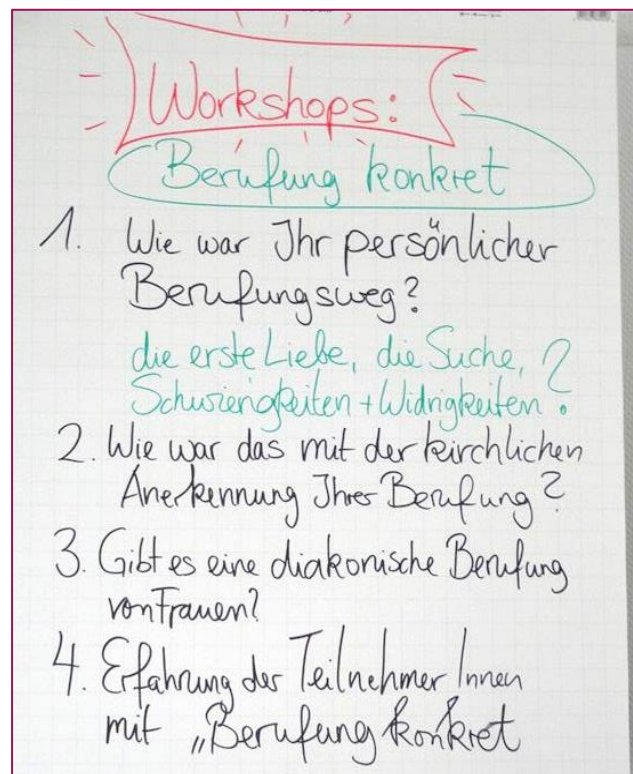 Workshops:
Berufung konkret
1. Wie war Ihr persönlicher
Berufungsweg?
die erste Liebe, die Suche,
Schwierigkeiten + Widrigkeiten?
2. Wie war das mit der kirchlichen
Anerkennung Ihrer Berufung?
3. Gibt es eine diakonische Berufung
von Frauen?
4. Erfahrung der Teilnehmer Innen
mit „Berufung konkret